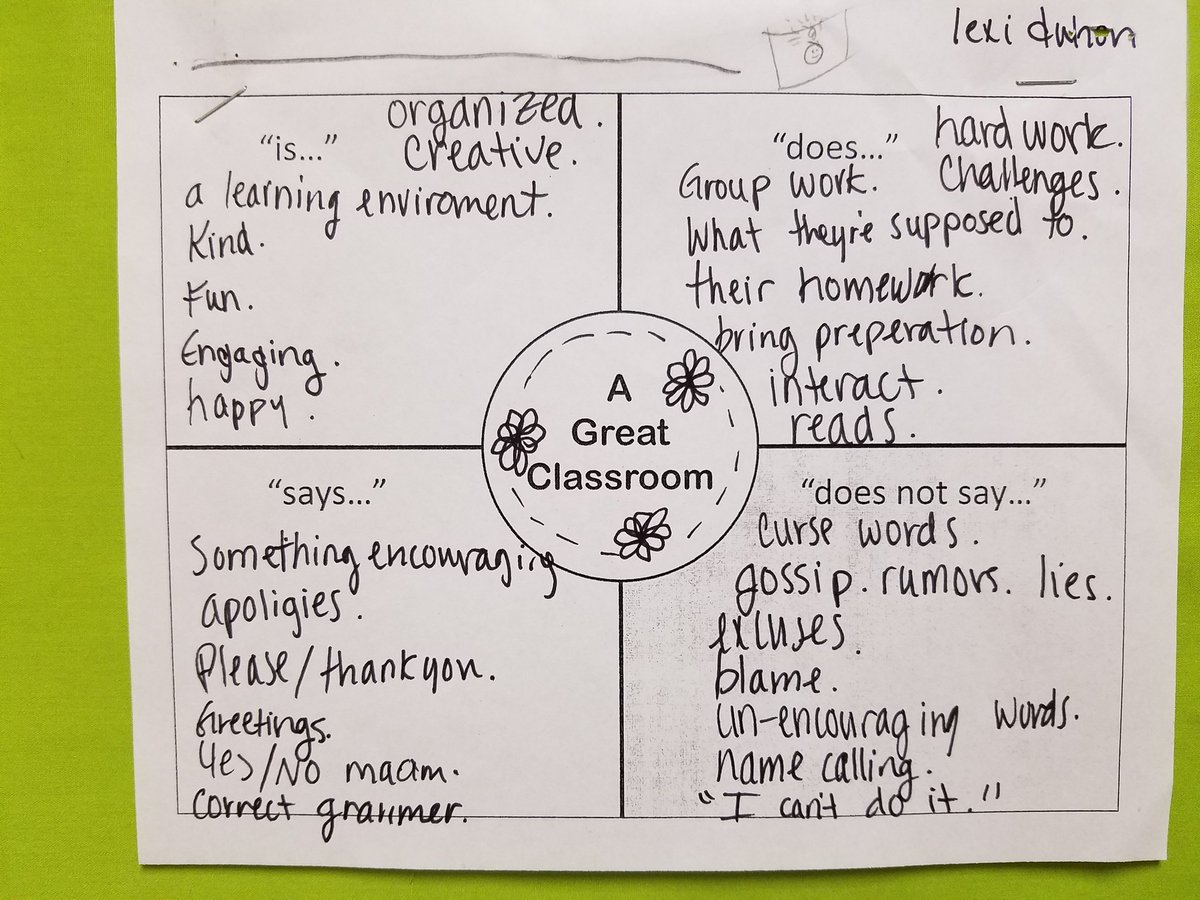 lexi duhon
organized.
"is..." creative.
a learning enviroment.
Kind.
Fun.
Engaging.
happy.
"does..." hard work.
Group work. Challenges.
What they're supposed to.
their homework.
bring preperation.
interact.
reads.
A
Great
Classroom
"says..."
Something encouraging
apoligies.
Please/thankyou.
Greetings.
Yes/No maam.
correct grammer.
"does not say..."
curse words.
gossip. rumors. lies.
excuses.
blame.
un-encouraging words.
name calling.
"I can't do it."